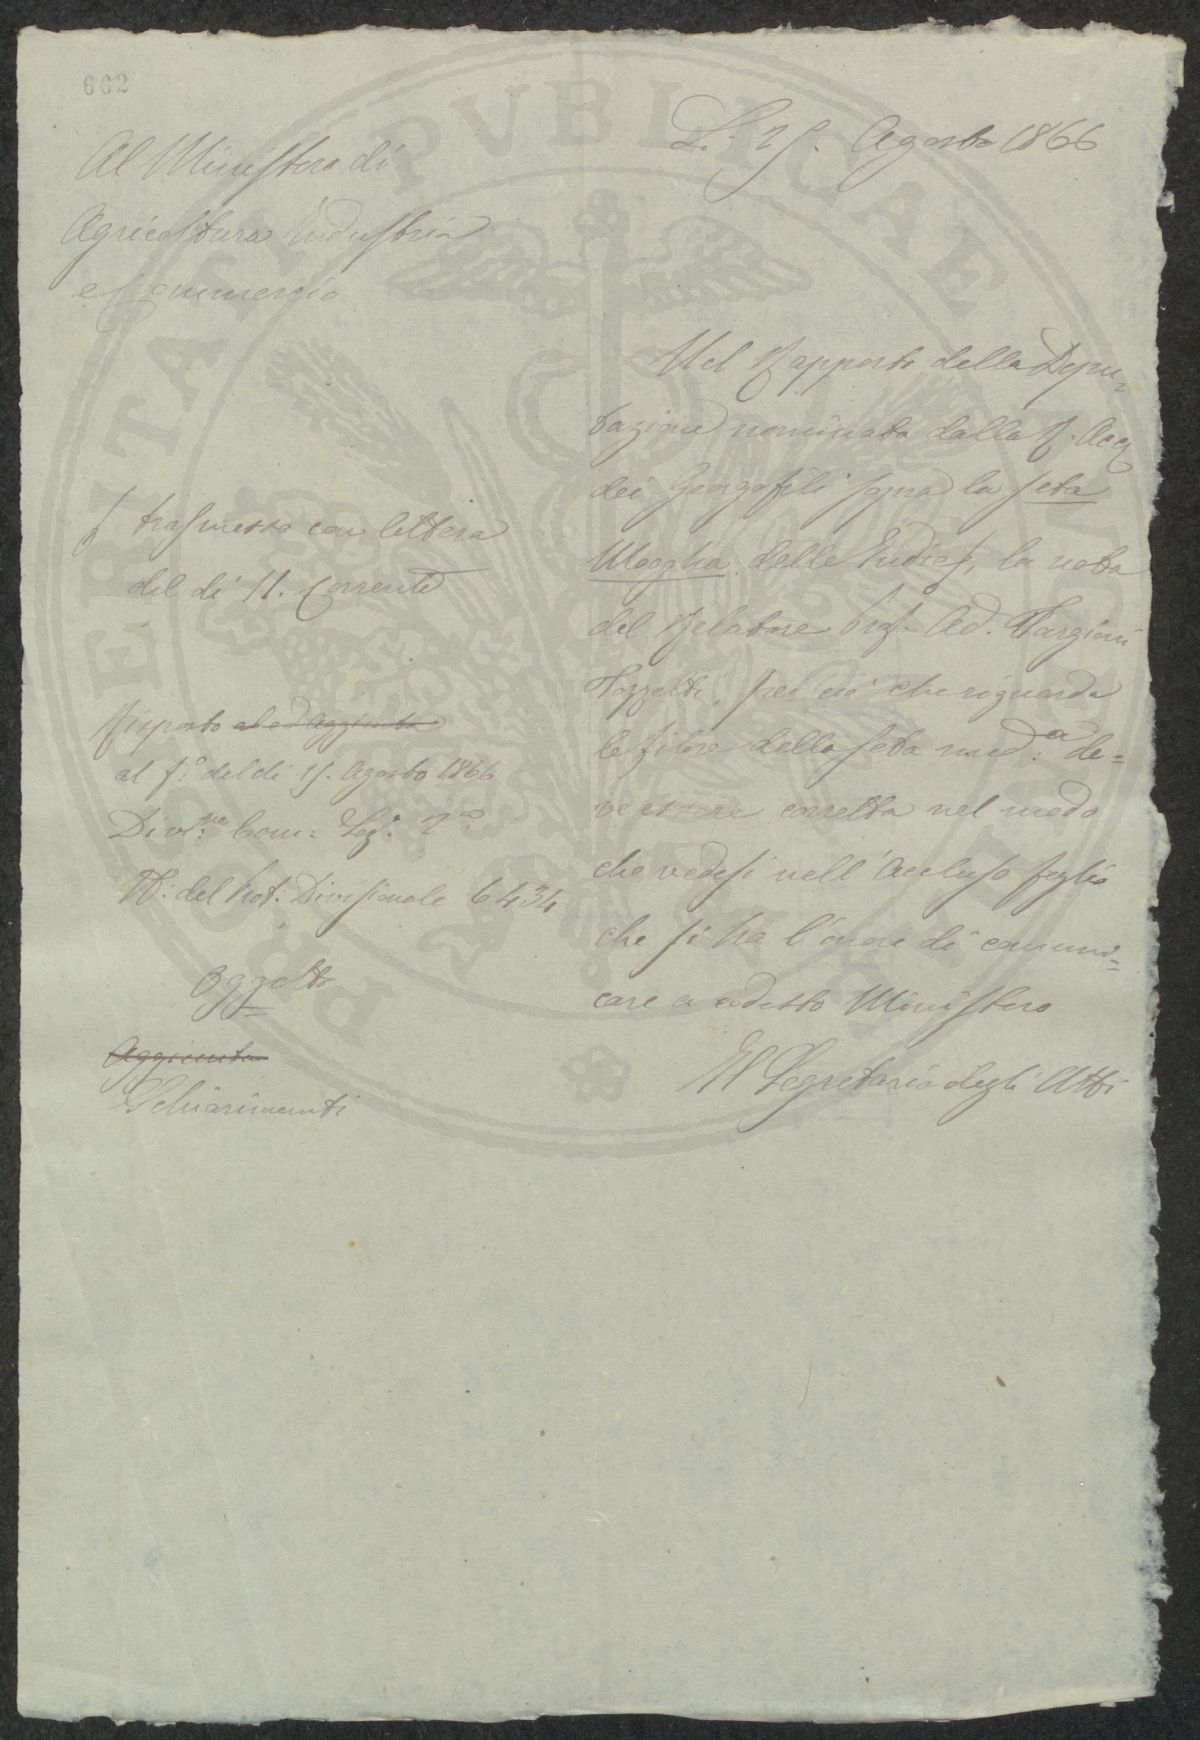 662
Li 25. Agosto 1866
Al Ministero di
Agricoltura Industria
e Commercio
Nel Rapporto della Depu=
tazione nominata dalla R. Acc
dei Georgofili sopra la seta
Moogha delle Indie f, la nota
del Relatore Prof. Ad. Targioni
Tozzetti, per ciò che riguarda
le fibre della seta med.a de=
ve essere corretta nel modo
che vedesi nell'accluso foglio
che si ha l'onore di comuni=
care a codesto Ministero
Il Segretario degli Atti
f trasmesso con lettera
del dì 11. Corrente
Risposta ad ed Aggiunta
al f.o del dì 1f. Agosto 1866
Divi.ne Com: Sez.e 2a
N: del Prot: Divisionale 6434
Oggetto
Aggiunta
Schiarimenti
PROSPERITATI PUBLICAE AUGENDAE